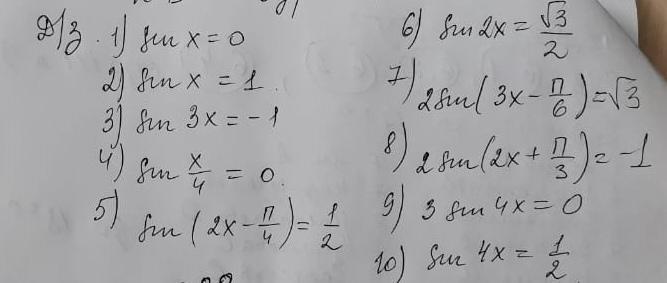 Д/з. 1) sin x = 0
2) sin x = 1.
3) sin 3x = -1
4) sin x/4 = 0.
5) sin (2x - π/4) = 1/2
6) sin 2x = √3/2
7) 2sin (3x - π/6) = √3
8) 2 sin (2x + π/3) = -1
9) 3 sin 4x = 0
10) sin 4x = 1/2